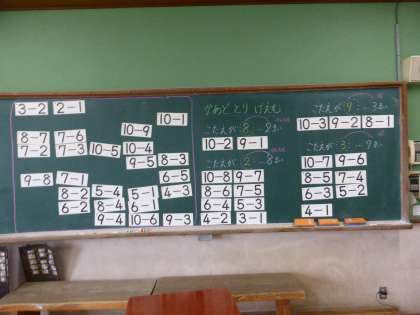 3-2 2-1
10-1
10-9
8-7 7-6
7-2 7-3 10-5 10-4
9-5 8-3
6-5
9-8 7-1
8-2 5-4 5-1 4-3
6-2 8-4 6-1
9-4 10-6 9-3
かあど とり げえむ
こたえが 8
10-2 9-1
こたえが 2
10-8 9-7
8-6 7-5
6-4 5-3
4-2 3-1
こたえが
10-3 9-2 8-1
こたえが 3
10-7 9-6
8-5 7-4
6-3 5-2
4-1